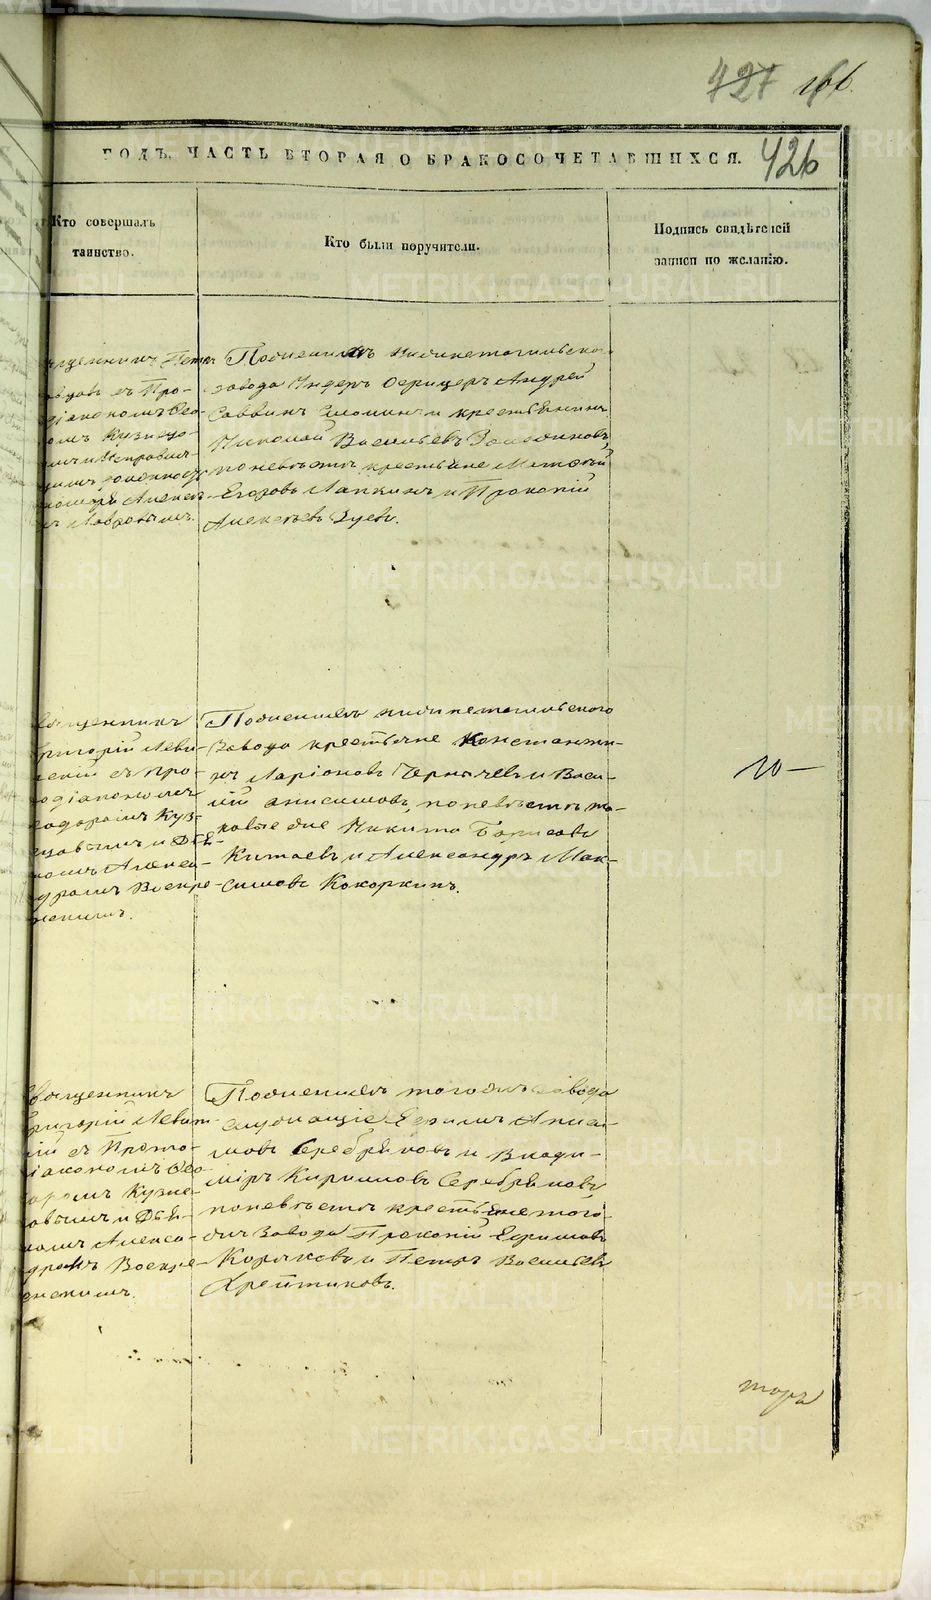 427 166.
ГОДЪ, ЧАСТЬ ВТОРАЯ О БРАКОСОЧЕТАВШИХСЯ. 426
Кто совершалъ
таинство.
Кто были поручители.
Подпись свидѣтелей
записи по желанію.
Петръ
съ Про-
Кузнецо-
Лавровымъ.
Поженихѣ нижнетагильскаго
завода Ундеръ Офицеръ Андрей
Саввинъ и крестьянинъ
Николай Васильевъ
поневѣстѣ крестьяне Матвей
Егоровъ Лапкинъ и Прокопій
Алексѣевъ Зуевъ.
Священникъ
Григорій Леви-
скій съ Про-
тодіакономъ
Феодоромъ Куз-
нецовымъ и Дья-
кономъ Алекса-
ндромъ Воскре-
сенскимъ.
Поженихѣ нижнетагильскаго
Завода крестьяне Константи-
нъ Ларіоновъ и Васи-
лій Анисимовъ, поневѣстѣ та-
ковые же Никита Борисовъ
Китаевъ и Александръ Мак-
симовъ Кокоркинъ.
10—
Священникъ
Григорій Левит-
скій съ Прото-
діакономъ Фео-
доромъ Кузне-
цовымъ и Дья-
кономъ Алекса-
ндромъ Воскре-
сенскимъ.
Поженихѣ тогожъ завода
служащіе Ефимъ Аниси-
мовъ Серебряковъ и Влади-
міръ Кириловъ Серебряковъ
поневѣстѣ крестьяне того-
жъ Завода Прокопій Ефимовъ
Коряковъ и Петръ Васильевъ
METRIKI.GASO-URAL.RU